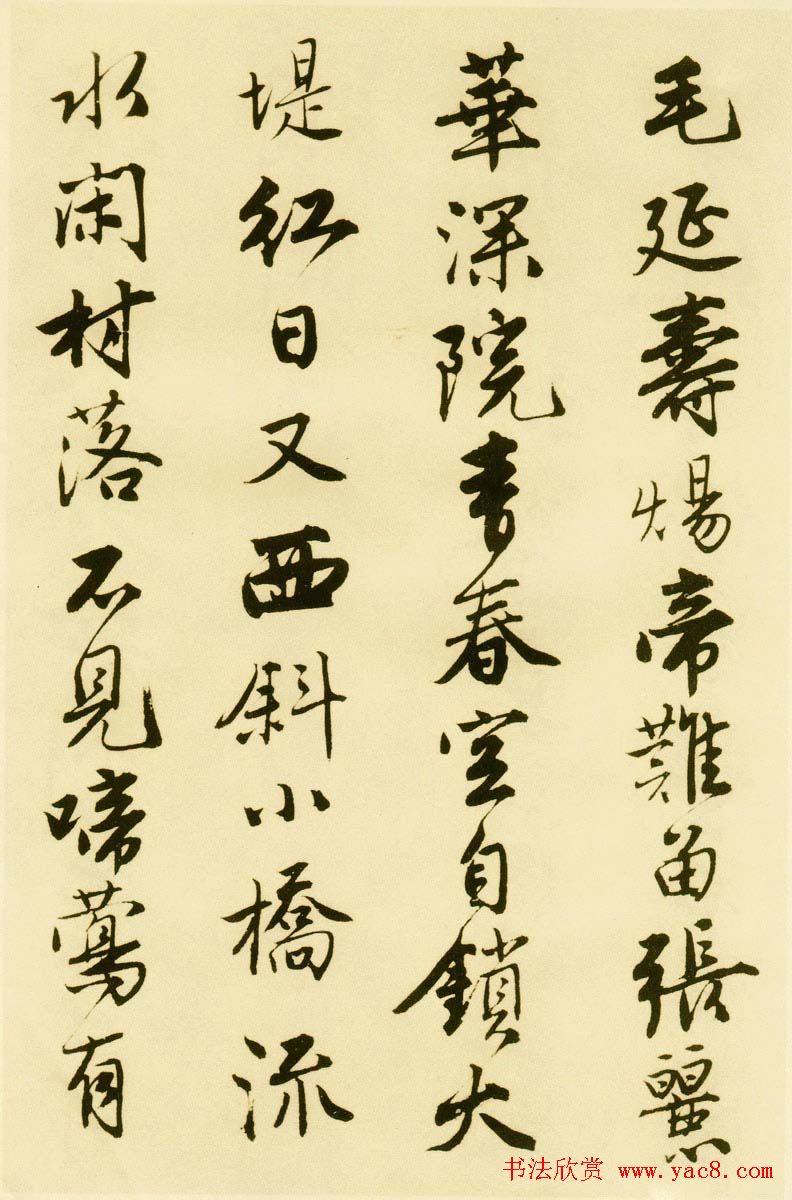 毛延壽煬帝難留張麗
華深院青春空自鎖大
堤紅日又西斜小橋流
水閑村落不見啼鶯有
书法欣赏 www.yac8.com